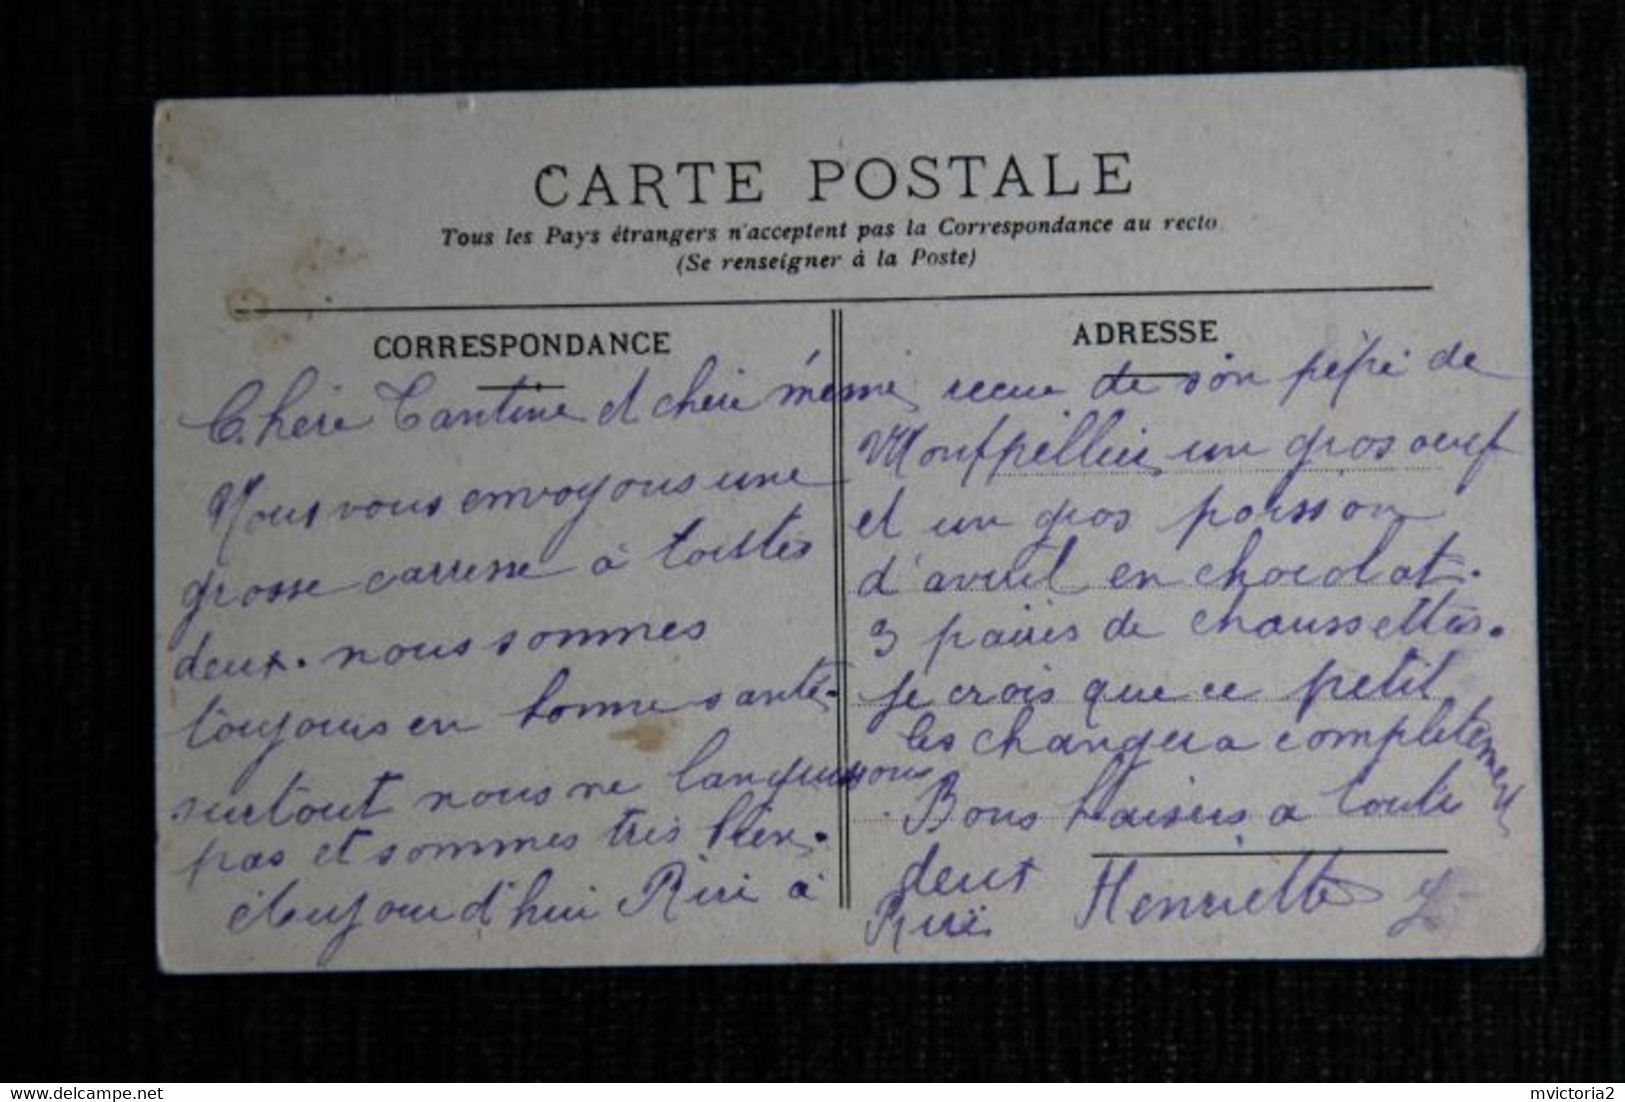 CARTE POSTALE
Tous les Pays étrangers n'acceptent pas la Correspondance au recto
(Se renseigner à la Poste)
CORRESPONDANCE
Chère Tantine et chère mémé
Nous vous envoyons une
grosse carresse à toutes
deux. nous sommes
toujours en bonne santé.
surtout nous ne languissons
pas et sommes très bien.
aujourd'hui Riri à
ADRESSE
recue de son pépé de
Montpellier un gros oeuf
et un gros poisson
d'avril en chocolat.
3 paires de chaussettes.
Je crois que ce petit
les changera complètement
Bons baisers a toute
deux
Riri Henriette
mvictoria2
Delcampe.net